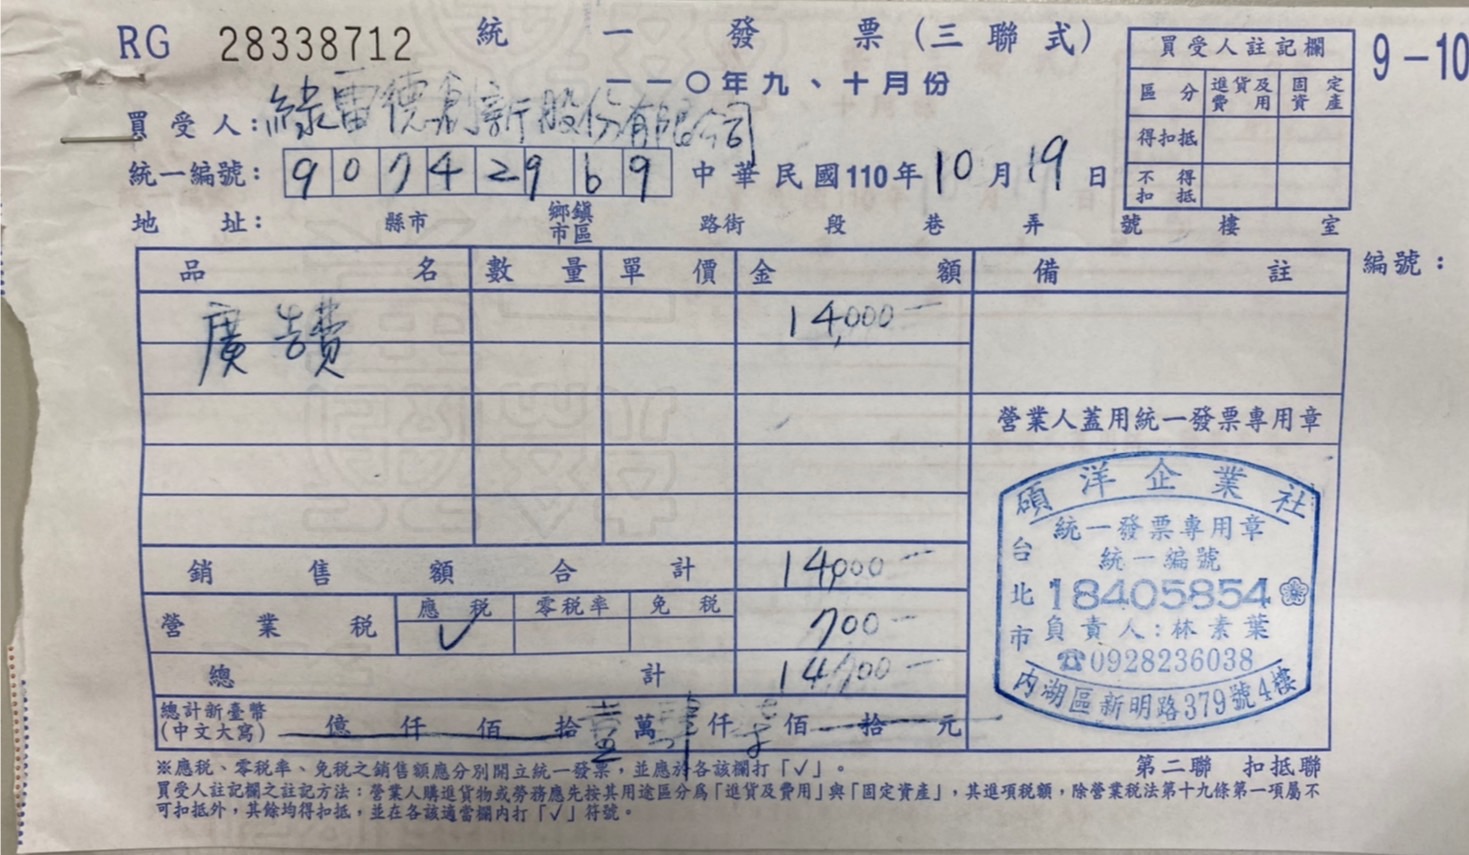 RG 28338712 統一發票(三聯式) 9-10
一一〇年九、十月份
買受人:綠雷德創新股份有限公司
統一編號:90742969 中華民國110年10月19日
地址: 縣市 鄉鎮市區 路街 段 巷 弄 號 樓 室
買受人註記欄
區分 進貨及費用 固定資產
得扣抵
不得扣抵
品名 數量 單價 金額 備註 編號:
廣告費 14,000
營業人蓋用統一發票專用章
銷售額合計 14,000
營業稅 應稅 零稅率 免稅 700
√
總計 14,700
總計新臺幣(中文大寫) 億 仟 佰 拾壹萬肆仟柒佰 拾 元
碩洋企業社
統一發票專用章
統一編號
台北市 18405854
負責人:林素葉
☎0928236038
內湖區新明路379號4樓
※應稅、零稅率、免稅之銷售額應分別開立統一發票,並應於各該欄打「√」。 第二聯 扣抵聯
買受人註記欄之註記方法:營業人購進貨物或勞務應先按其用途區分為「進貨及費用」與「固定資產」,其進項稅額,除營業稅法第十九條第一項屬不
可扣抵外,其餘均得扣抵,並在各該適當欄內打「√」符號。